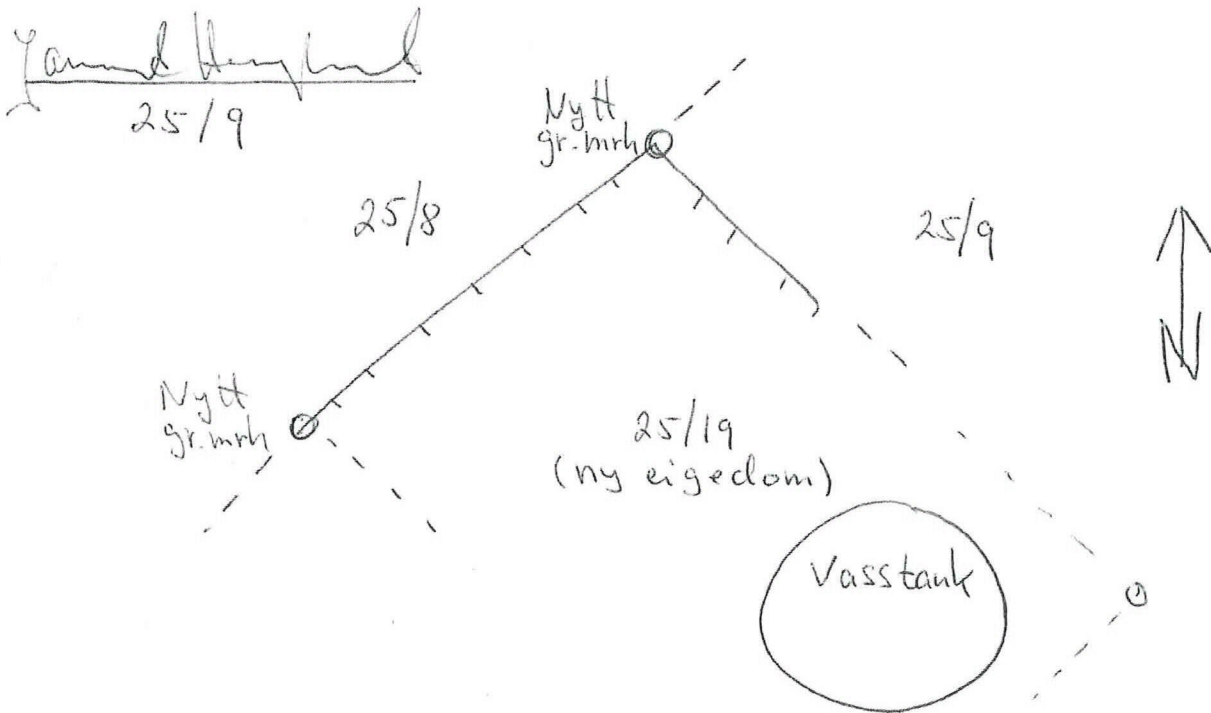 25/9
Nytt
gr.mrk
25/8
25/9
N
Nytt
gr.mrk
25/19
(ny eigedom)
Vasstank